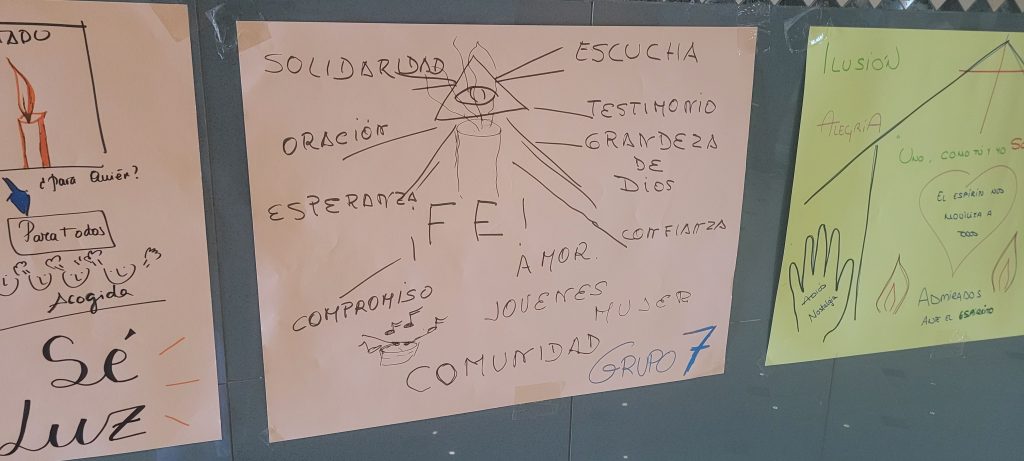 TADO
¿Para Quién?
Para Todos
Acogida
Sé
Luz
SOLIDARIDAD
ESCUCHA
ORACIÓN
TESTIMONIO
GRANDEZA
DE
DIOS
ESPERANZA
¡FE!
CONFIANZA
AMOR.
COMPROMISO
JOVENES
MUJER
COMUNIDAD
GRUPO 7
ILUSIÓN
ALEGRÍA
UNO, COMO TÚ Y YO
EL ESPÍRITU NOS
MOVILIZA A
TODOS
Nostalgia
ADMIRADOS
ANTE EL ESPÍRITU